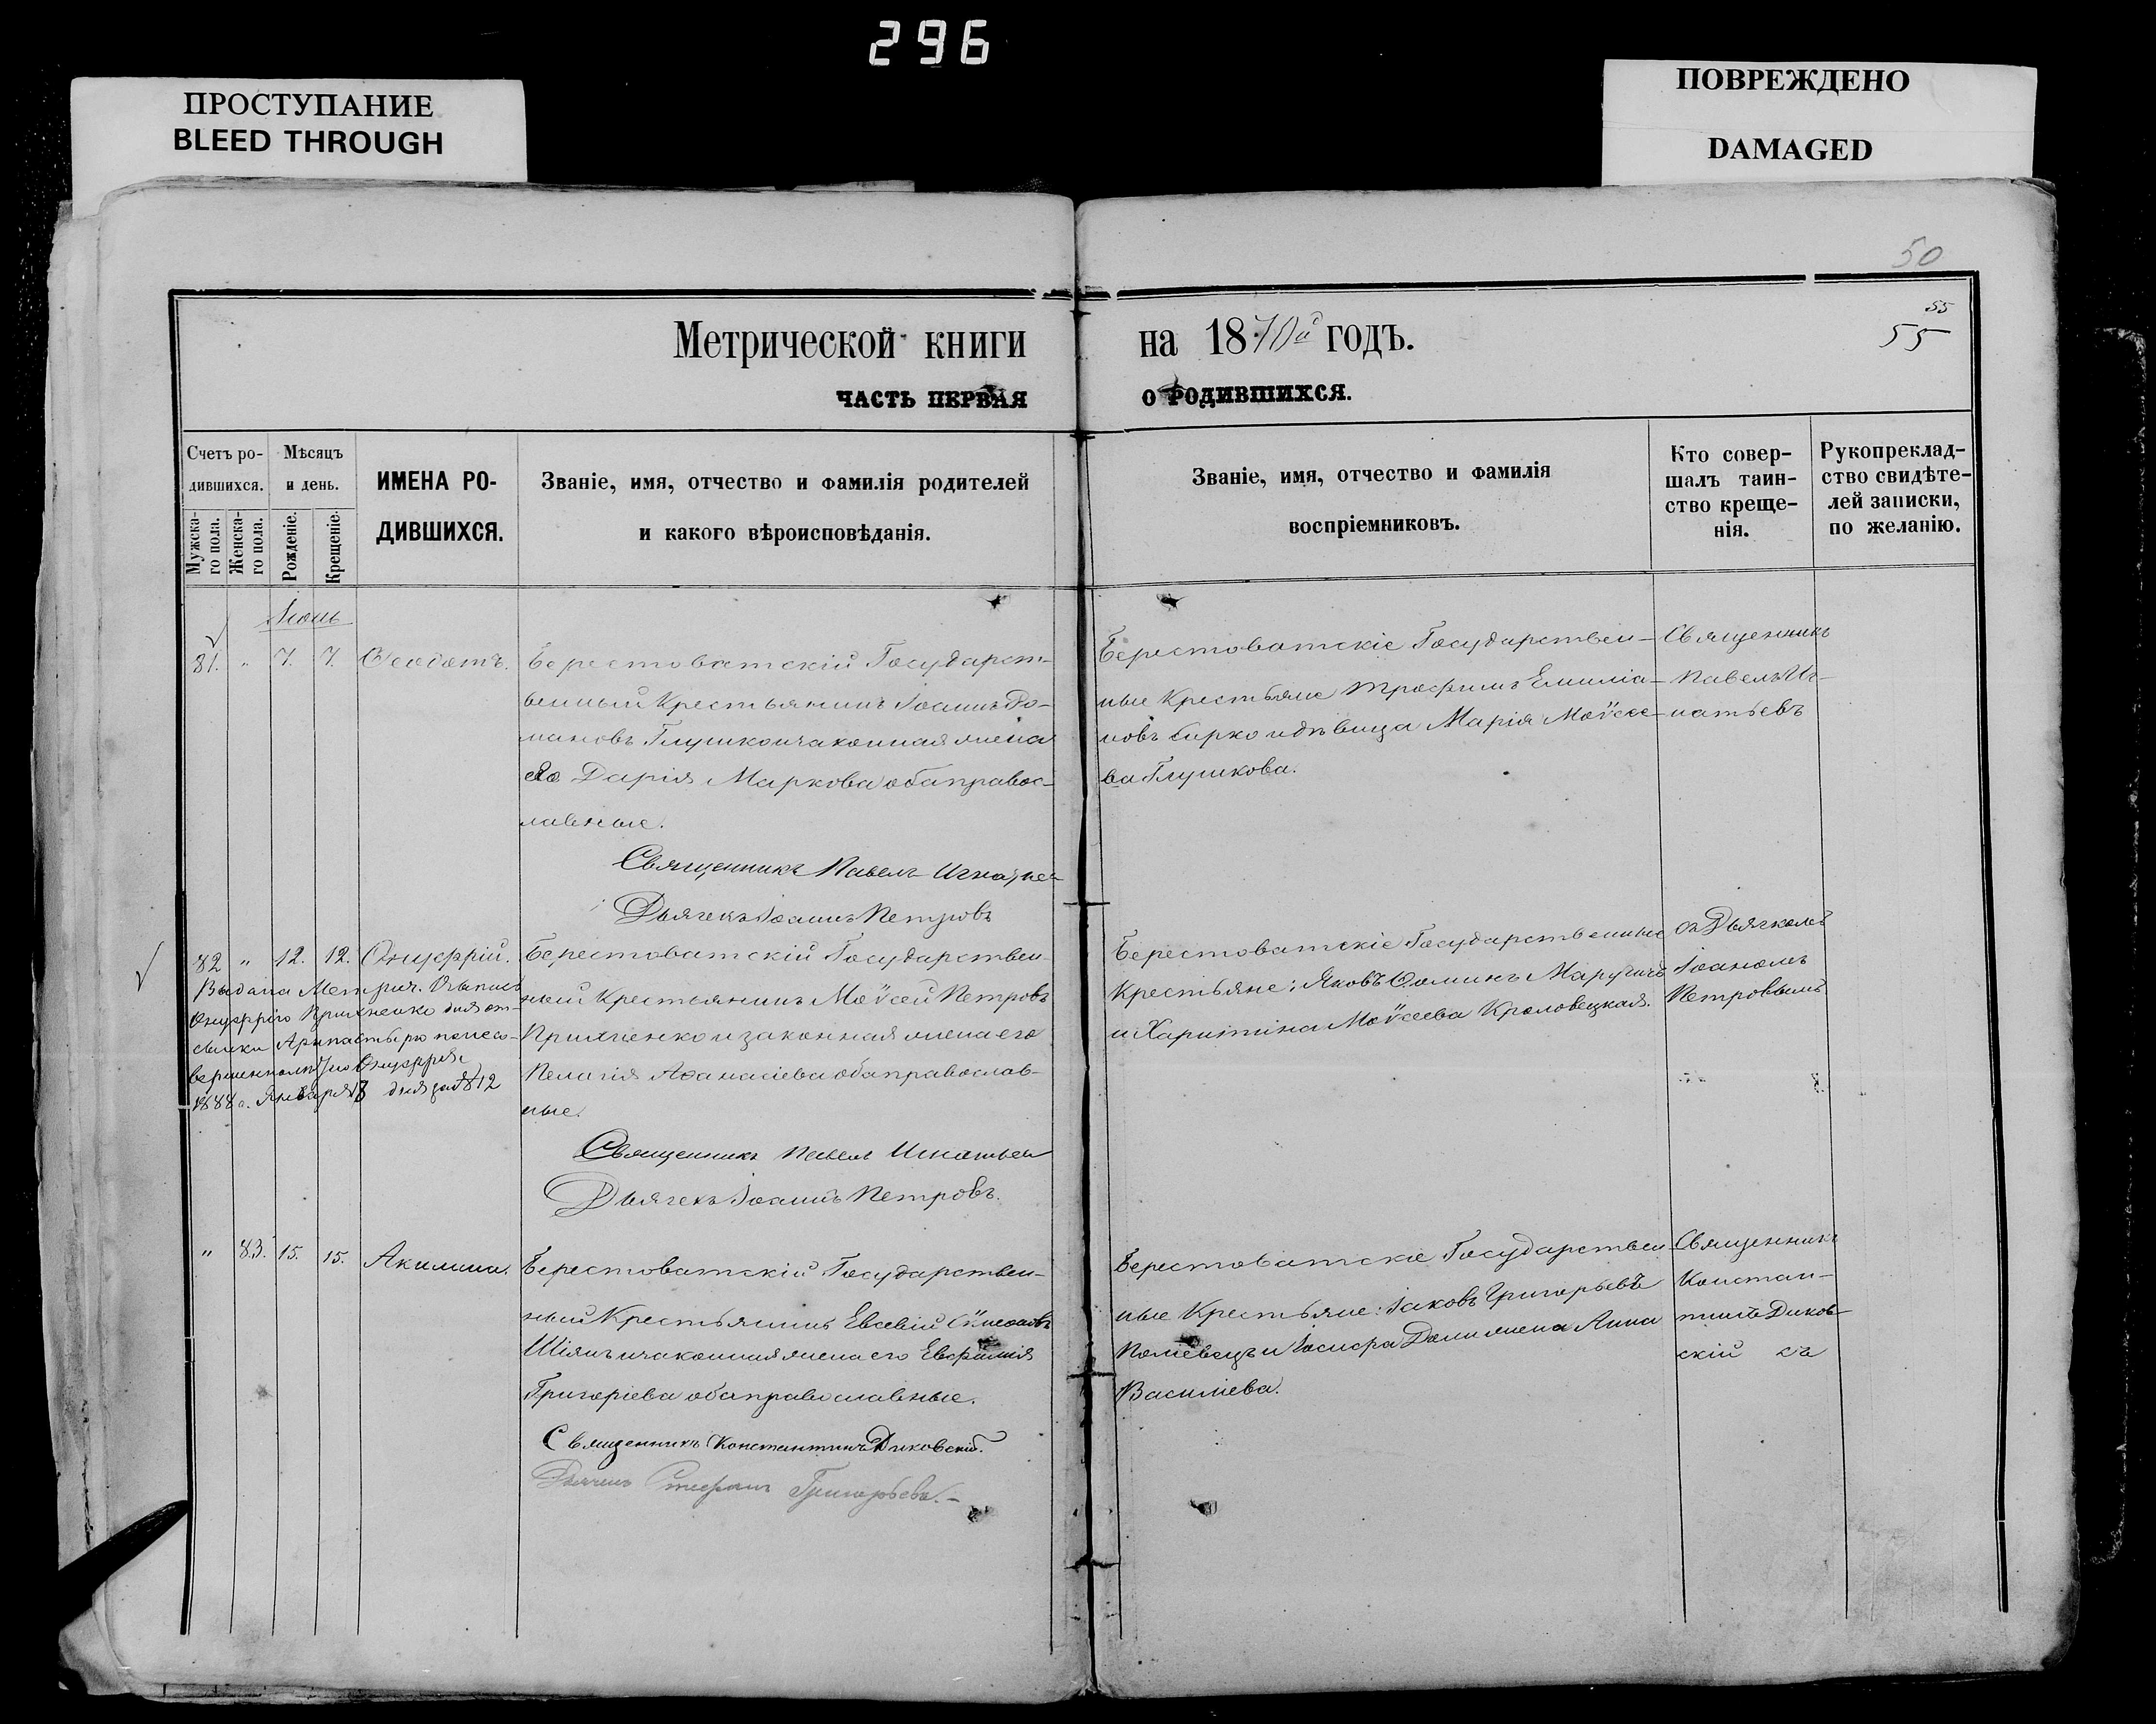 296
ПРОСТУПАНИЕ
BLEED THROUGH
ПОВРЕЖДЕНО
DAMAGED
50
55
55
Метрической книги на 1870й годъ.
ЧАСТЬ ПЕРВАЯ О РОДИВШИХСЯ.
Счетъ ро-
дившихся.
Мужска-
го пола.
Женска-
го пола.
Мѣсяцъ
и день.
Рожденіе.
Крещеніе.
ИМЕНА РО-
ДИВШИХСЯ.
Званіе, имя, отчество и фамилія родителей
и какого вѣроисповѣданія.
Званіе, имя, отчество и фамилія
воспріемниковъ.
Кто совер-
шалъ таин-
ство креще-
нія.
Рукопреклад-
ство свидѣте-
лей записки,
по желанію.
Іюнь
81. " 7. 7. Ѳеодотъ.
Берестоватскій Государст-
венный Крестьянинъ Іоаннъ Ро-
мановъ Глушко и законная жена
его Дарія Маркова оба правос-
лавные.
Священникъ Павелъ
Дьячекъ Іоаннъ Петровъ
Берестоватскіе Государствен-
ные Крестьяне Трофимъ Емиліа-
новъ Сирко и дѣвица Марія Моѵсее-
ва Глушкова.
Священникъ
Павелъ Иг-
натьевъ
82 " 12. 12. Онуфрій.
Выдана Метрич. Выпись
Онуфрію для от-
1888 г. Января
Берестоватскій Государствен-
ный Крестьянинъ Моѵсей Петровъ
и законная жена его
Пелагія Аѳанасіева оба православ-
ные.
Священникъ Павелъ Игнатьев
Дьячекъ Іоаннъ Петровъ.
Берестоватскіе Государственные
Крестьяне: Яковъ Ѳоминъ
и Харитина Моѵсеева Кроловецкая.
съ Дьячкомъ
Іоаномъ
Петровымъ
" 83. 15. 15. Акилина.
Берестоватскій Государствен-
ный Крестьянинъ Евсевій Сѵмеоновъ
Шіянъ и законная жена его Евфимія
Григоріева оба православные.
Священникъ Константинъ Диковскій.
Дьячекъ Стефанъ Григорьевъ.
Берестоватскіе Государствен
ные Крестьяне: Іаковъ Григорьевъ
и жена Анна
Василіева.
Священникъ
Констан-
тинъ Диков-
скій съ